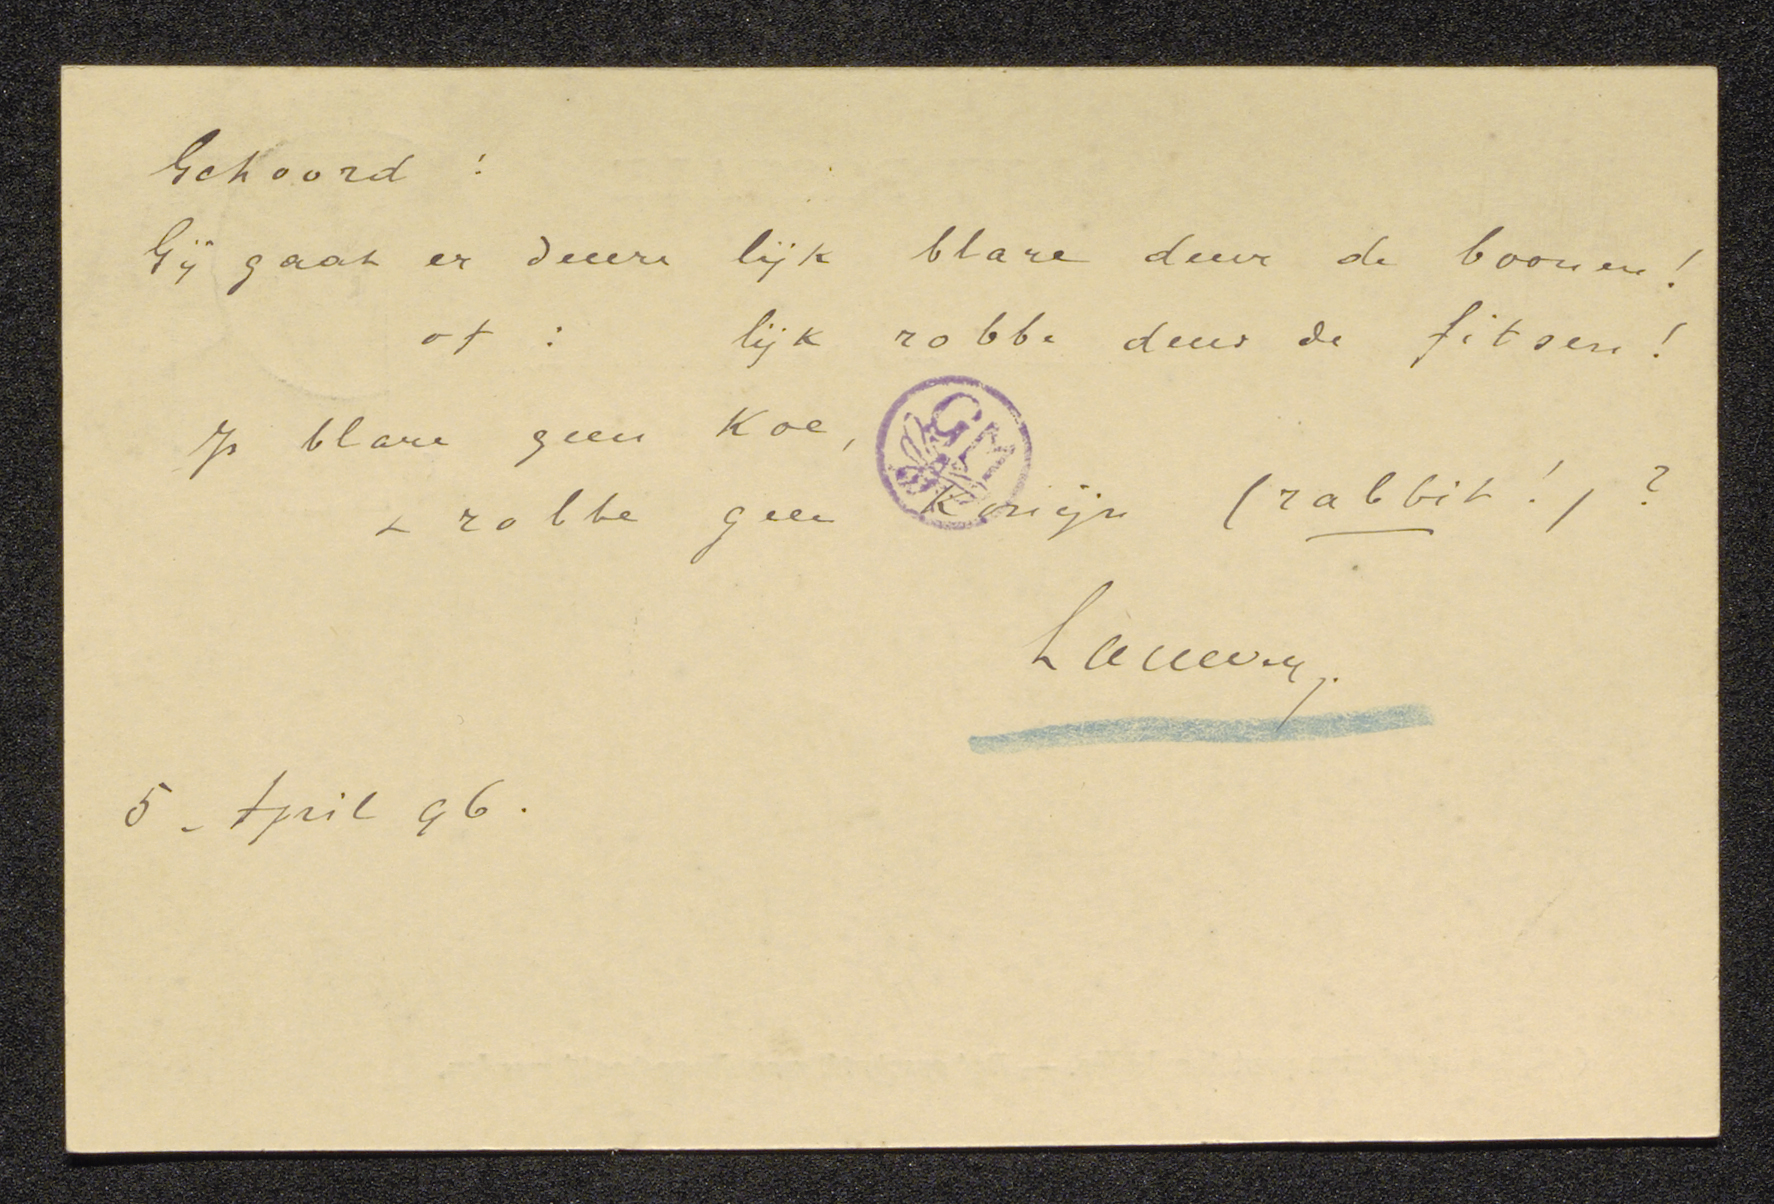 Gehoord :
Gij gaat er deure lijk blare deur de boonen!
of : lijk robbe deur de fitsen!
Is blare geen Koe,
& robbe geen Konijn (rabbit!) ?
Lauwers.
5 - April 96.